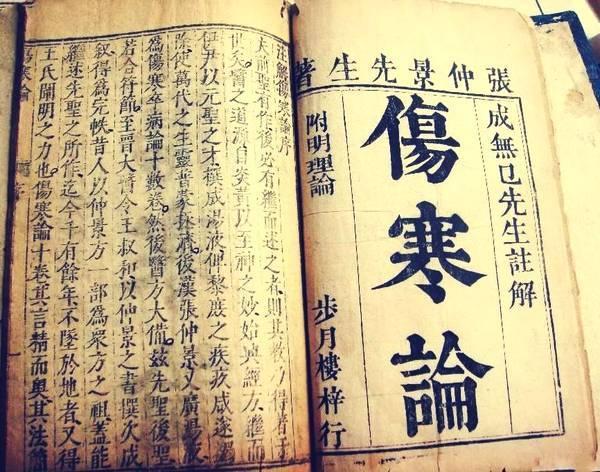 張仲景先生著
成無已先生註解
傷寒論
附明理論
步月樓梓行
注解傷寒論序
夫前聖有作後必有繼而述之者則其教乃得著于
世矣醫之道源自炎黃以至神之妙始興經方繼而
伊尹以元聖之才撰成湯液俾黎庶之疾疚咸遂蠲
除使萬代之生靈普蒙拯濟後漢張仲景又廣湯液
為傷寒卒病論十數卷然後醫方大備茲先聖後聖
若合符節至晉大醫令王叔和以仲景之書撰次成
叙得為完帙昔人以仲景方一部為衆方之祖蓋能
繼述先聖之所作迄今千有餘年不墜於地者又得
王氏闡明之力也傷寒論十卷其言精而奧其法簡
傷寒論 序